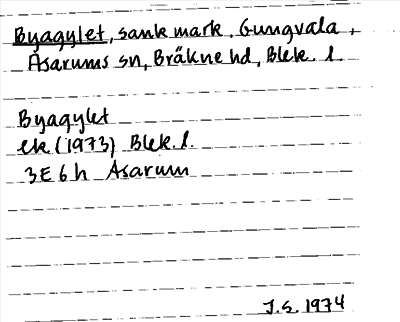 Byagylet, sank mark. Gungvala,
Asarums sn, Bräkne hd, Blek. l.
Byagylet
ek. (1973) Blek. l.
3E 6h Asarum
J.S. 1974